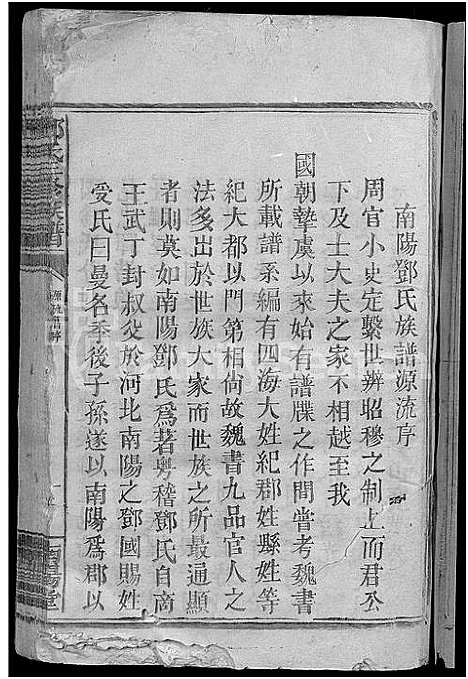 南陽鄧氏族譜源流序
周官小史定繫世辨昭穆之制上而君公
下及士大夫之家不相越至我
國朝摯虞以來始有譜牒之作間嘗考魏書
所載譜系編有四海大姓紀郡姓縣姓等
紀大都以門第相尙故魏書九品官人之
法多出於世族大家而世族之所最通顯
者則莫如南陽鄧氏爲著粤稽鄧氏自商
王武丁封叔父於河北南陽之鄧國賜姓
受氏曰曼名季後子孫遂以南陽爲郡以
南陽堂